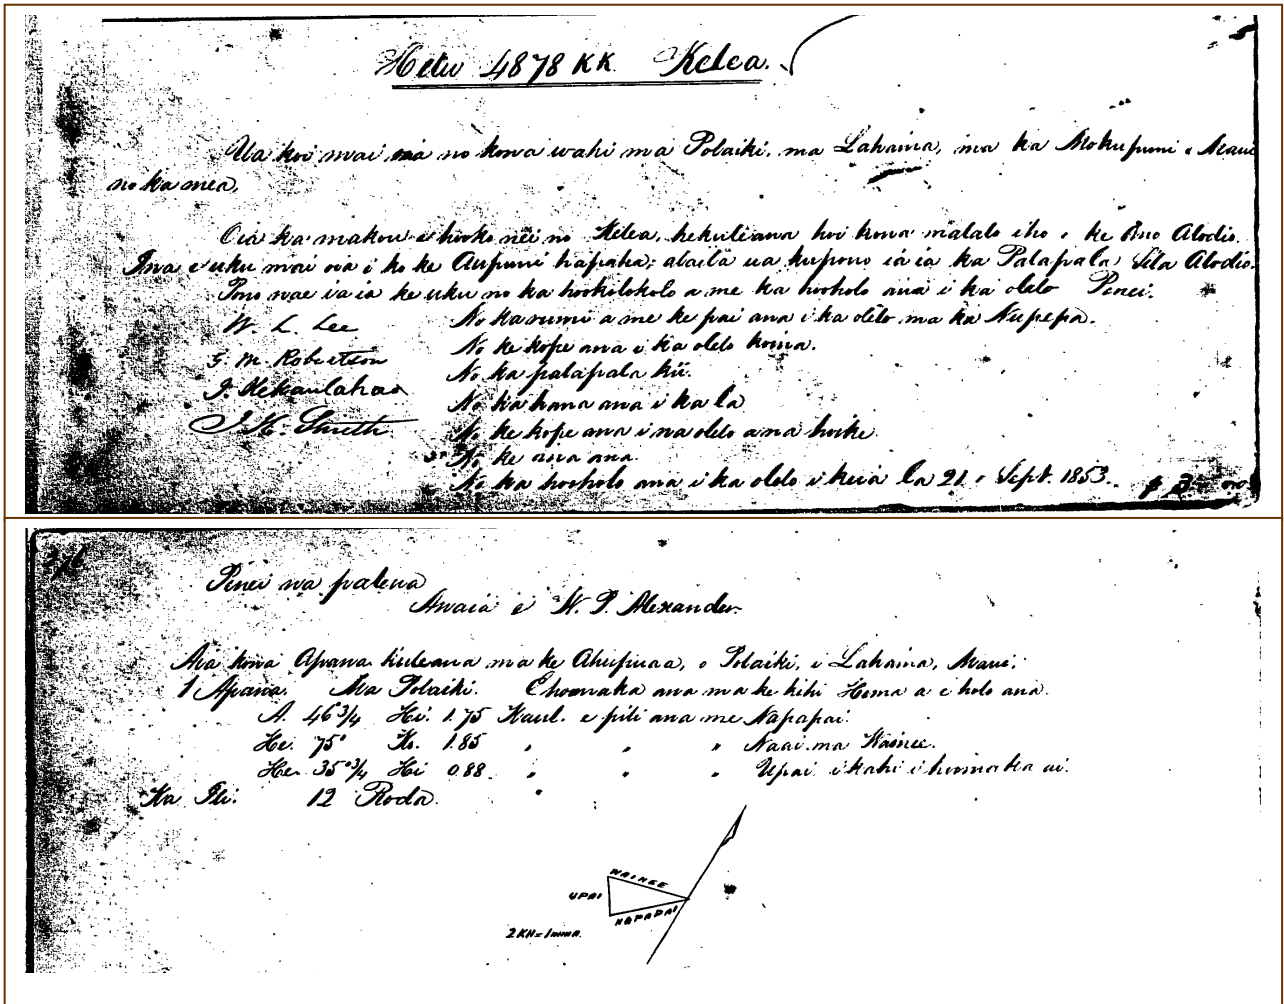 Helu 4878 KK. Kelea.
Ua koi mai oia no kona wahi ma Polaiki, ma Lahaina, ma ka Mokupuni o Maui
no ka mea,
Oia ka makou e hooko nei no Kelea, he kuleana koi kona malalo iho o ke Ano Alodio.
Ina e uku mai oia i ko ke Aupuni hapakolu; alaila ua kupono ia ia ka Palapala Sila Alodio.
Pono nae ia ia ke uku no ka hookolokolo a me ka hooholo ana i ka olelo Penei.
W. L. Lee
No ka rumi a me ke pai ana i ka olelo ma ka Nupepa.
G. M. Robertson
No ke kope ana i ka olelo koina.
J. Kekaulahao
No ka palapala kii.
J. H. Smith
No ka hana ana i ka la
No ke kope ana i na olelo a na hoike.
No ke ana ana.
No ka hooholo ana i ka olelo i keia la 21 o Sept. 1853. $ 3
Penei na palena
Anaia e W. P. Alexander
Aia kona Apana kuleana ma ke Ahupuaa, o Polaiki, i Lahaina, Maui.
1 Apana. Ma Polaiki. E hoomaka ana ma ke kihi Hema a e holo ana.
A. 46 3/4 Hi. 1.75 Kaul. e pili ana me Napapai.
He. 75° Ko. 1.85 " " " Naai ma Wainee.
He. 35° 3/4 Hi 0.88 " " " Upai i kahi i hoomaka ai.
Ka Ili. 12 Roda.
WAINEE
UPAI
NAPAPAI
2 KH = 1 iniha.